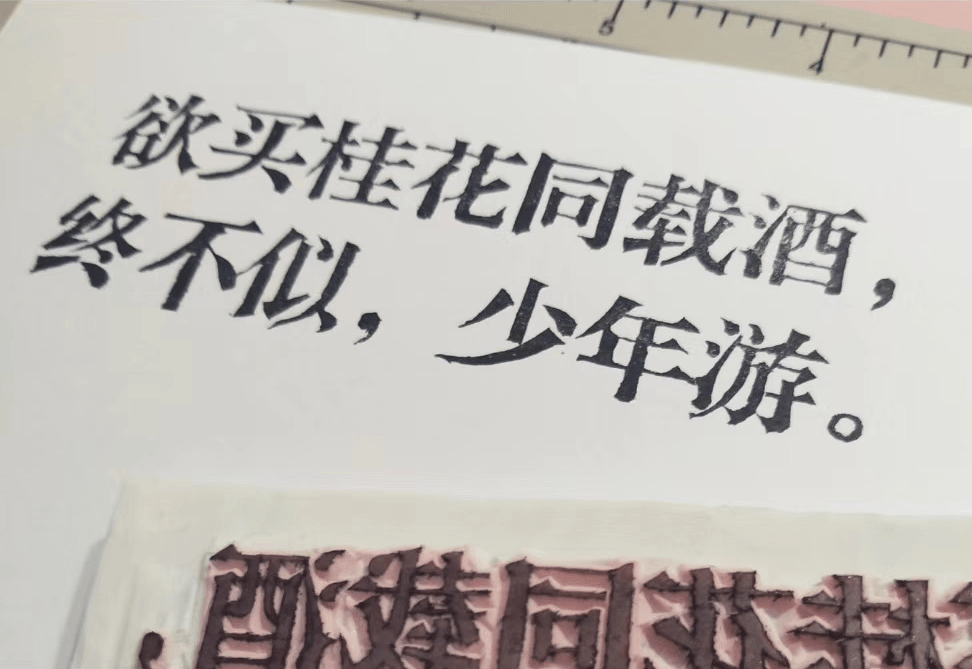 5
4
欲买桂花同载酒，
终不似，少年游。
酒载同花桂